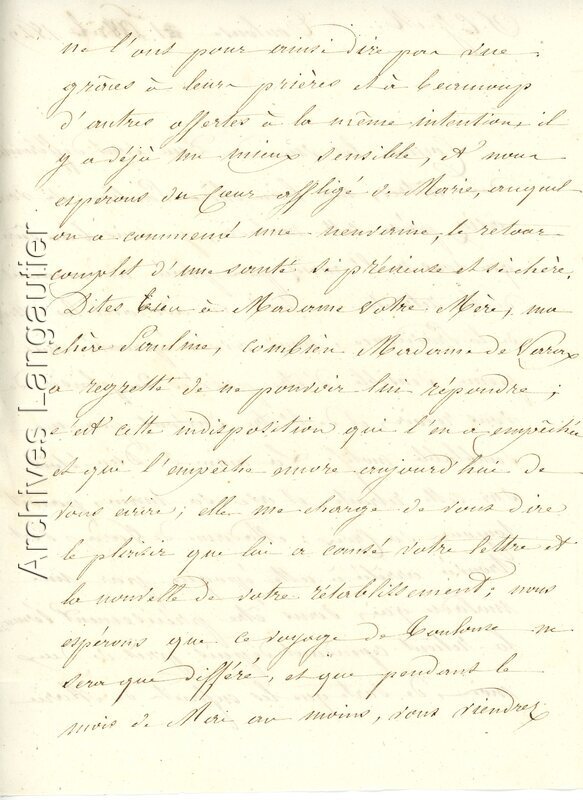 ne l'ont pour ainsi dire pas vue.
grâces à leurs prières et à beaucoup
d'autres offertes à la même intention, il
y a déjà un mieux sensible, et nous
espérons du Cœur affligé de Marie, auquel
on a commencé une neuvaine, le retour
complet d'une santé si précieuse et si chère.
Dites bien à Madame votre Mère, ma
chère Pauline, combien Madame de
a regretté de ne pouvoir lui répondre ;
c'est cette indisposition qui l'en a empêchée
et qui l'empêche encore aujourd'hui de
vous écrire ; elle me charge de vous dire
le plaisir que lui a causé votre lettre et
la nouvelle de votre rétablissement ; nous
espérons que ce voyage de Toulouse ne
sera que différé, et que pendant le
mois de Mai au moins, vous viendrez
Archives Langautier